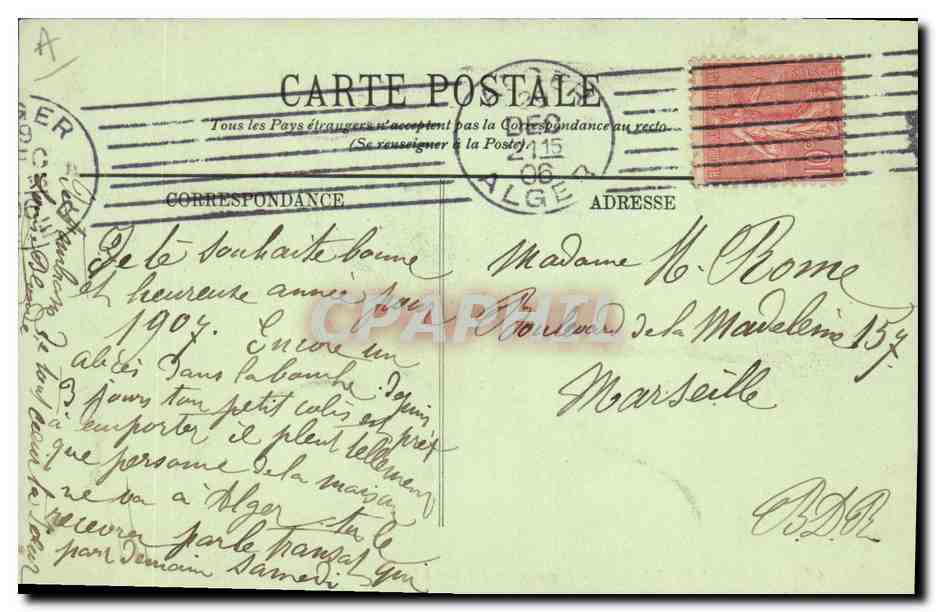 CARTE POSTALE
Tous les Pays étrangers n'acceptent pas la Correspondance au recto.
(Se renseigner à la Poste).
CORRESPONDANCE
ADRESSE
DEC
21 15
06
ALGER
10
Je te souhaite bonne
et heureuse année pour
1907. Encore un
abcès dans la bouche depuis
3 jours ton petit colis est prêt
à emporter il pleut tellement
que personne de la maison
ne va à Alger tu le
recevras par le transat qui
part demain samedi
t'embrasse de tout cœur ta sœur
Madame H. Rome
Boulevard de la Madeleine 157
Marseille
B.D.R
CPAPHIL